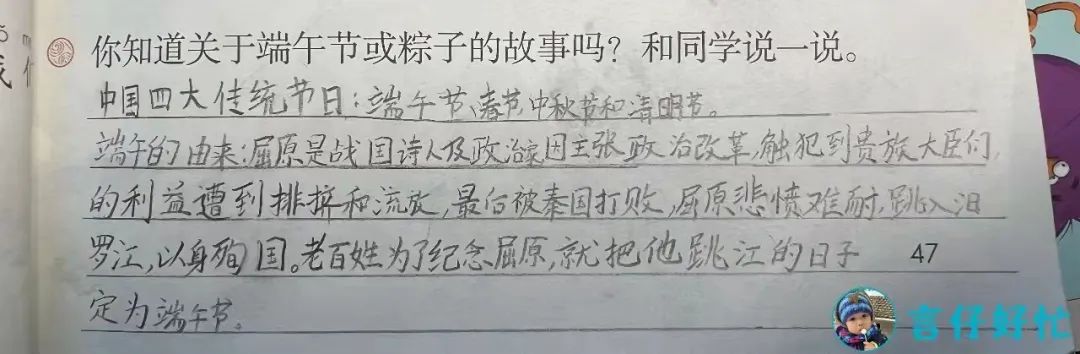 你知道关于端午节或粽子的故事吗？和同学说一说。
中国四大传统节日：端午节、春节、中秋节和清明节。
端午的由来：屈原是战国诗人及政治家因主张政治改革，触犯到贵族大臣们，
的利益遭到排挤和流放，最后被秦国打败，屈原悲愤难耐，跳入汨
罗江，以身殉国。老百姓为了纪念屈原，就把他跳江的日子
47
定为端午节。
言仔好忙